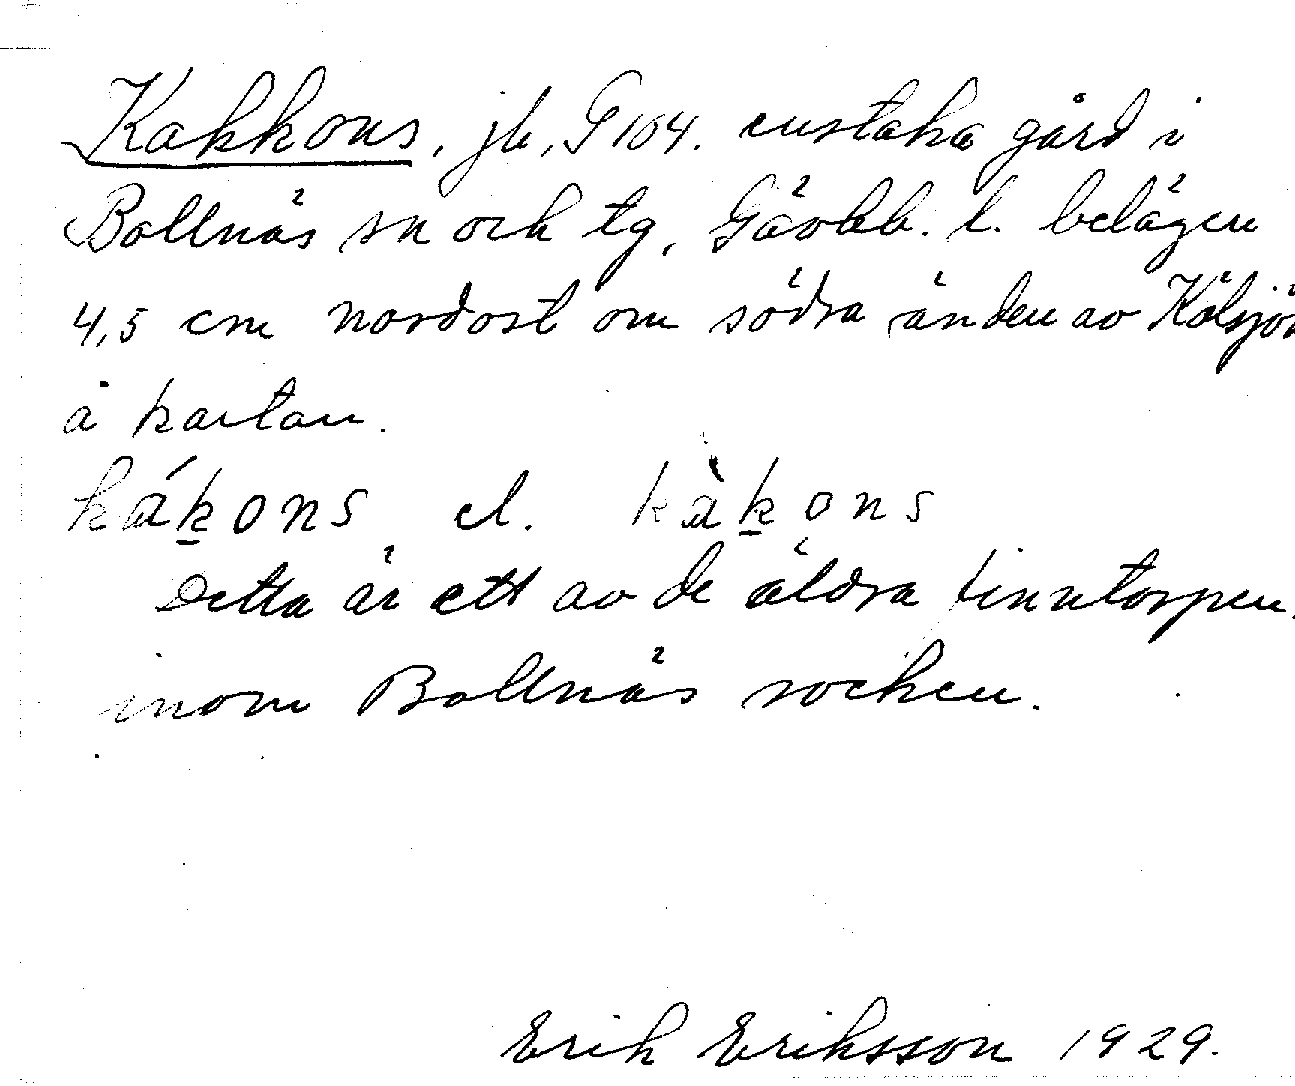 Kakkons, jb, G 104. enstaka gård i
Bollnäs sn och tg, Gävleb. l. belägen
4,5 cm nordost om södra änden av Kölsjön
å kartan.
kákons el. kàkons
Detta är ett av de äldra finntorpen
inom Bollnäs socken.
Erik Eriksson 1929.